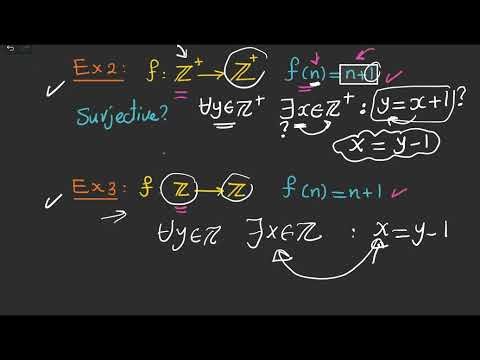 Ex2: f: ℤ⁺ → ℤ⁺ f(n) = n+1
Surjective? ∀y∈ℤ⁺ ∃x∈ℤ⁺ : y = x+1 ?
? x = y-1
Ex3: f ℤ → ℤ f(n) = n+1
∀y∈ℤ ∃x∈ℤ : x = y-1